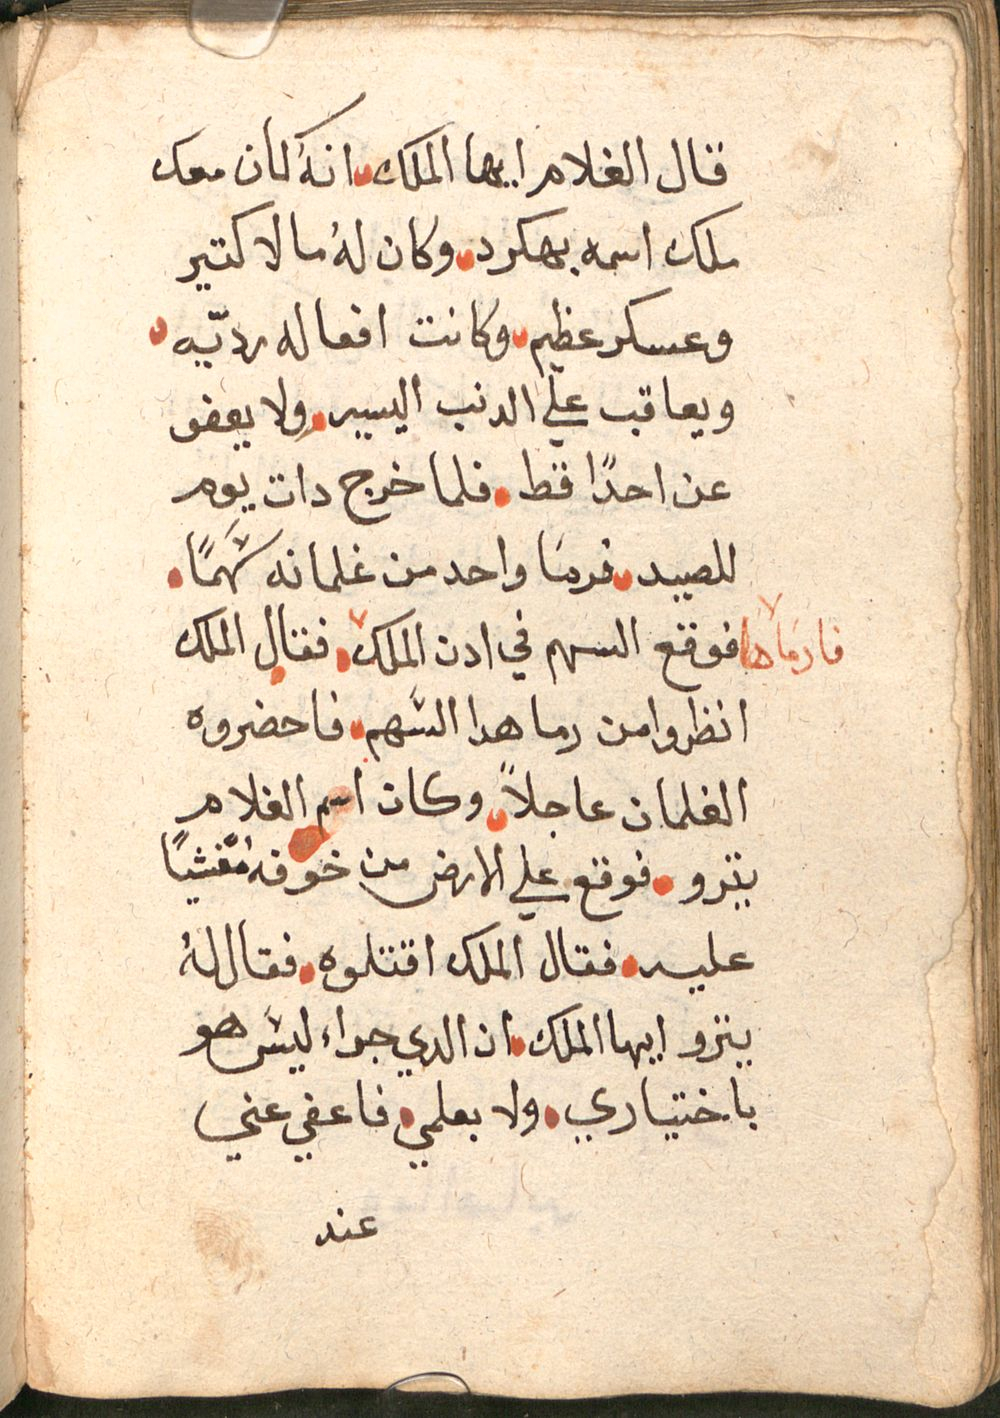 قال الغلام ايها الملك انهُ كان معك
ملك اسمه بهكرد وكان لهُ مالا كتير
وعسكر عظيم وكانت افعاله رديّه
ويعاقب علي الدنب اليسير ولا يعفو
عن احدًا قط فلما خرج دات يوم
للصيد فرما واحد من غلمانه سهمًا
فارماها فوقع السهم في ادن الملك فقال الملك
انظروا من رما هدا السهم فاحضروه
الغلمان عاجلاً وكان اسم الغلام
يترو فوقع علي الارض من خوفه مغشيًا
عليه فقال الملك اقتلوه فقال لهُ
يترو ايها الملك ان الدي جراء ليس هو
باختياري ولا بعلمي فاعفي عني
عند